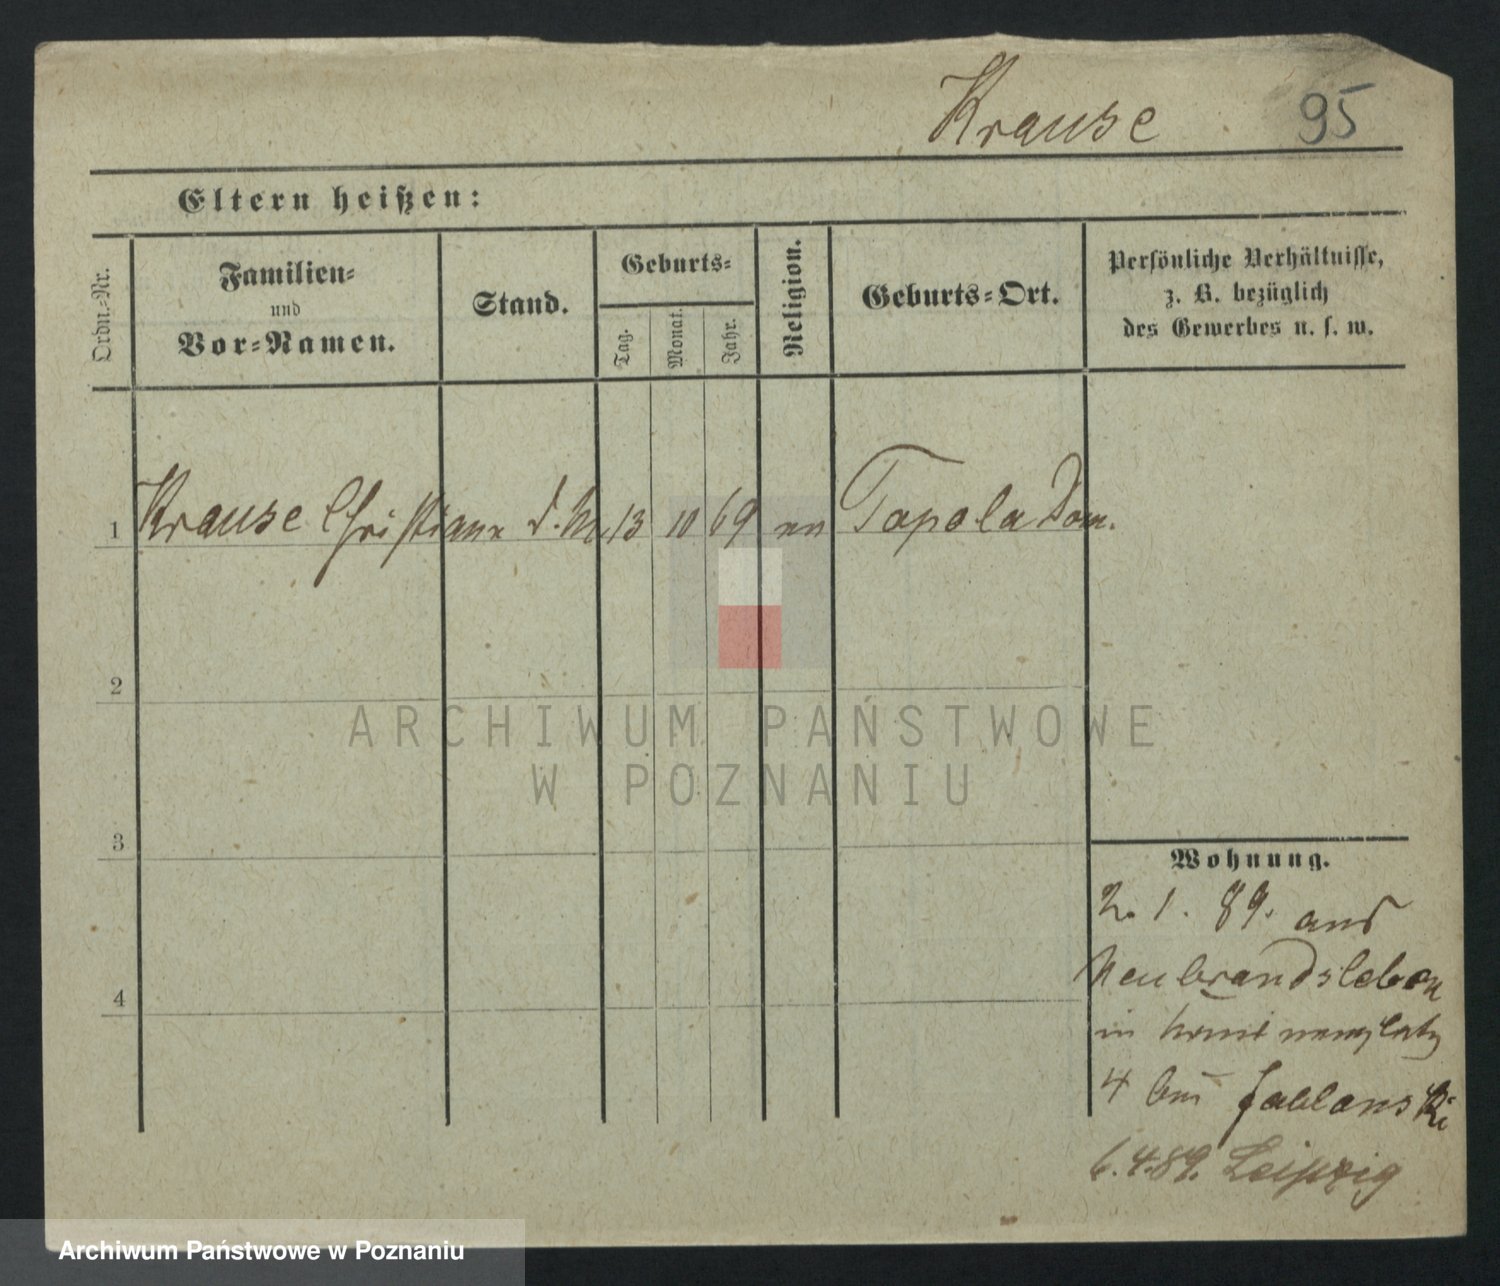 Krause 95
Eltern heißen:
Ordn.-Nr.
Familien-
und
Vor-Namen.
Stand.
Geburts-
Tag.
Monat.
Jahr.
Religion.
Geburts-Ort.
Persönliche Verhältnisse,
z. B. bezüglich
des Gewerbes u. s. w.
1 Krause Christiane d. M. 13 10 69 ev Topola Dom.
2
3
4
Wohnung.
2. 1. 89. aus
Neubrandsleben
in
4 bei Jablonski
6.4.89. Leipzig
ARCHIWUM PAŃSTWOWE
W POZNANIU
Archiwum Państwowe w Poznaniu